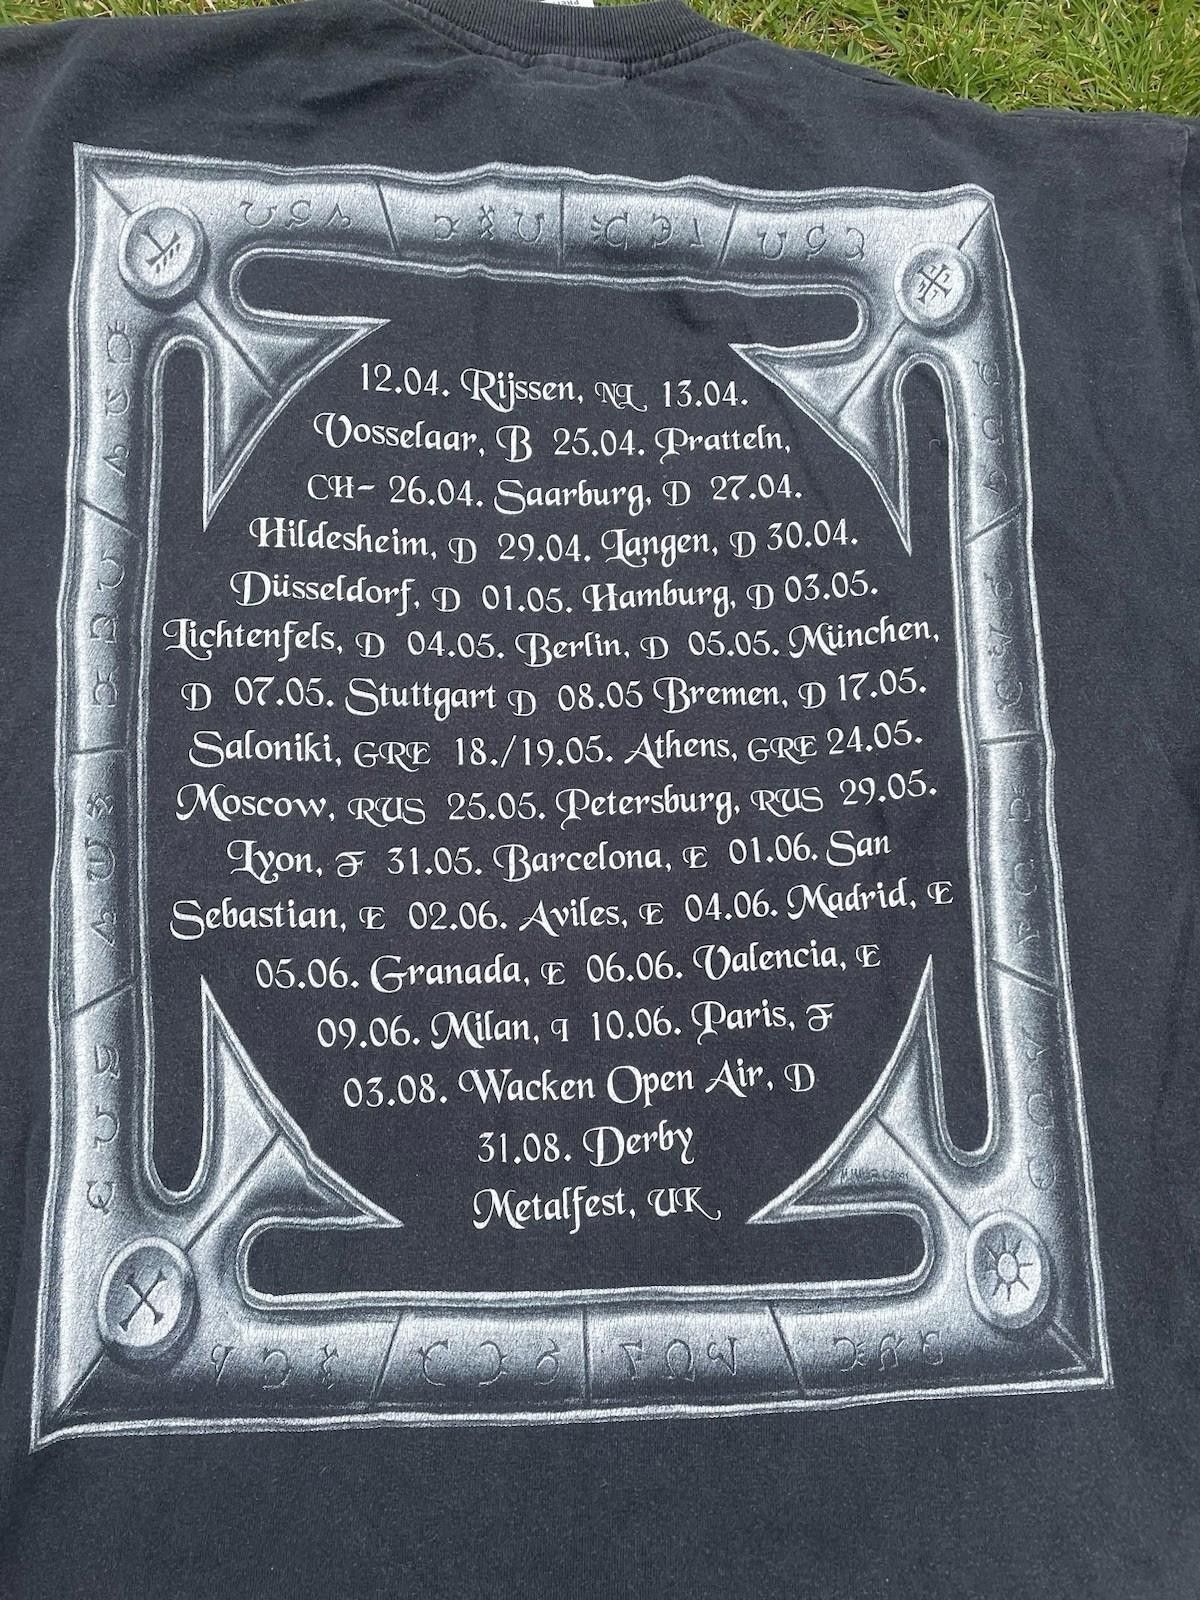 12.04. Rijssen, NL 13.04.
Vosselaar, B 25.04. Pratteln,
CH- 26.04. Saarburg, D 27.04.
Hildesheim, D 29.04. Langen, D 30.04.
Düsseldorf, D 01.05. Hamburg, D 03.05.
Lichtenfels, D 04.05. Berlin, D 05.05. München,
D 07.05. Stuttgart D 08.05 Bremen, D 17.05.
Saloniki, GRE 18./19.05. Athens, GRE 24.05.
Moscow, RUS 25.05. Petersburg, RUS 29.05.
Lyon, F 31.05. Barcelona, E 01.06. San
Sebastian, E 02.06. Aviles, E 04.06. Madrid, E
05.06. Granada, E 06.06. Valencia, E
09.06. Milan, I 10.06. Paris, F
03.08. Wacken Open Air, D
31.08. Derby
Metalfest, UK